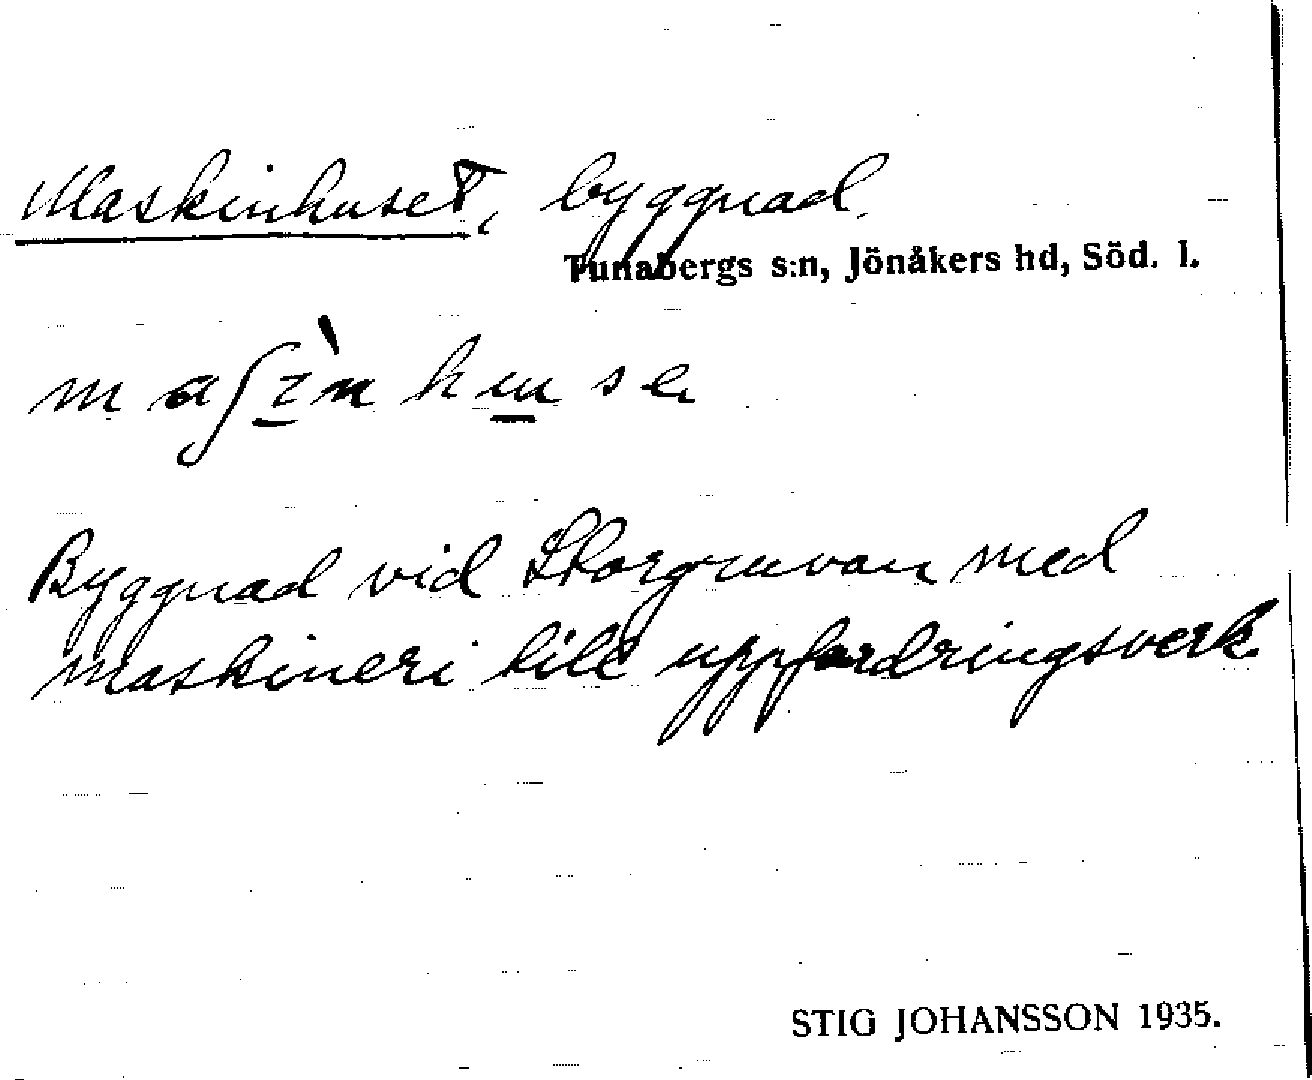 Maskinhuset, byggnad.
Tunabergs s:n, Jönåkers hd, Söd. l.
maʃì̱nhu̱se
Byggnad vid Storgruvan med
maskineri till uppfordringsverk
STIG JOHANSSON 1935.